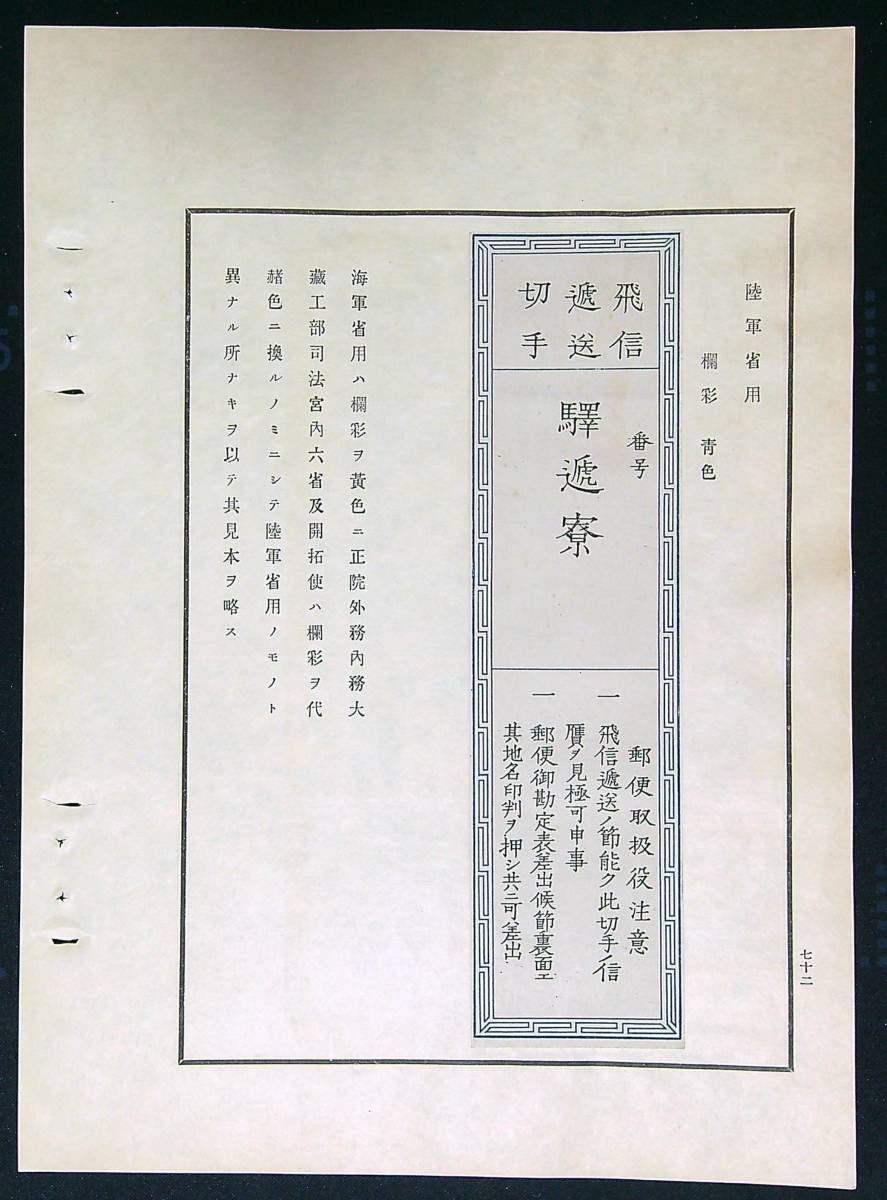 陸軍省用
欄彩 靑色
飛信
遞送
切手
番号
驛遞寮
郵便取扱役注意
一 飛信遞送ノ節能ク此切手ノ信
贋ヲ見極可申事
一 郵便御勘定表差出候節裏面エ
其地名印判ヲ押シ共ニ可差出
海軍省用ハ欄彩ヲ黃色ニ正院外務內務大
藏工部司法宮內六省及開拓使ハ欄彩ヲ代
赭色ニ換ルノミニシテ陸軍省用ノモノト
異ナル所ナキヲ以テ其見本ヲ略ス
七十二